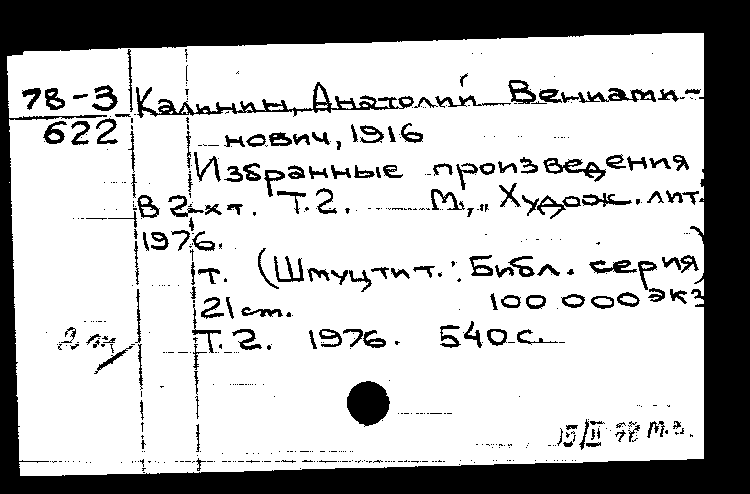 78-3 Калинин, Анатолий Вениами-
622 нович, 1916
Избранные произведения.
В 2-х т. Т.2. М., „Худож. лит."
1976.
т. (Шмуцтит.: Библ. серия)
21 ст. 100 000 экз
Т.2. 1976. 540 с.
2 т
15/II 78 М.З.